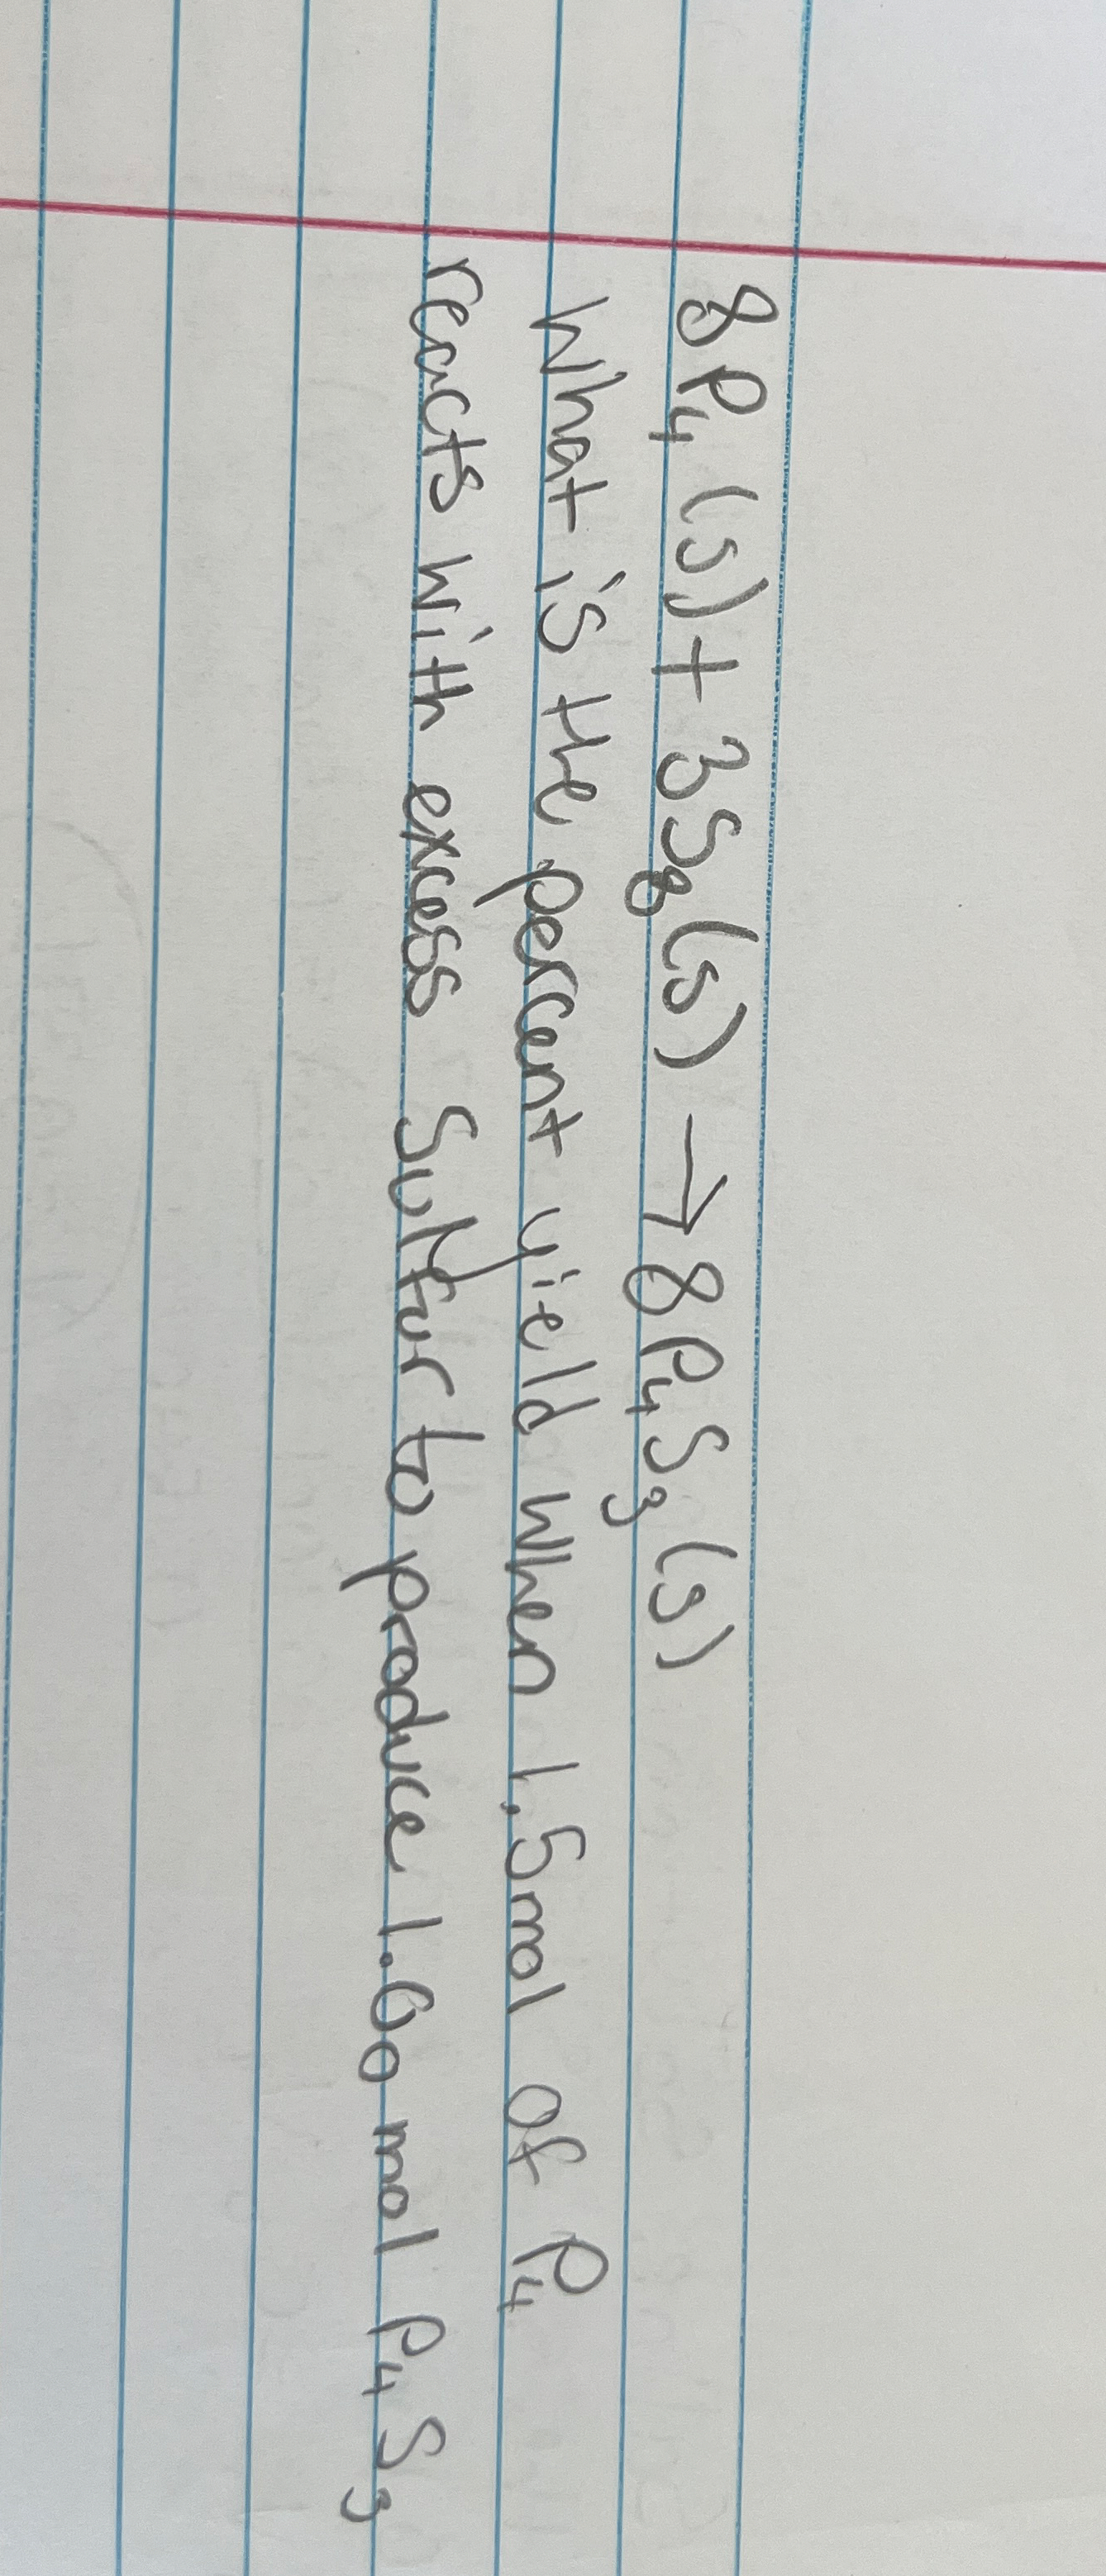 8P₄ (s) + 3S₈(s) → 8P₄S₃ (s)
What is the percent yield when 1.5mol of P₄
reacts with excess Sulfur to produce 1.00 mol P₄S₃